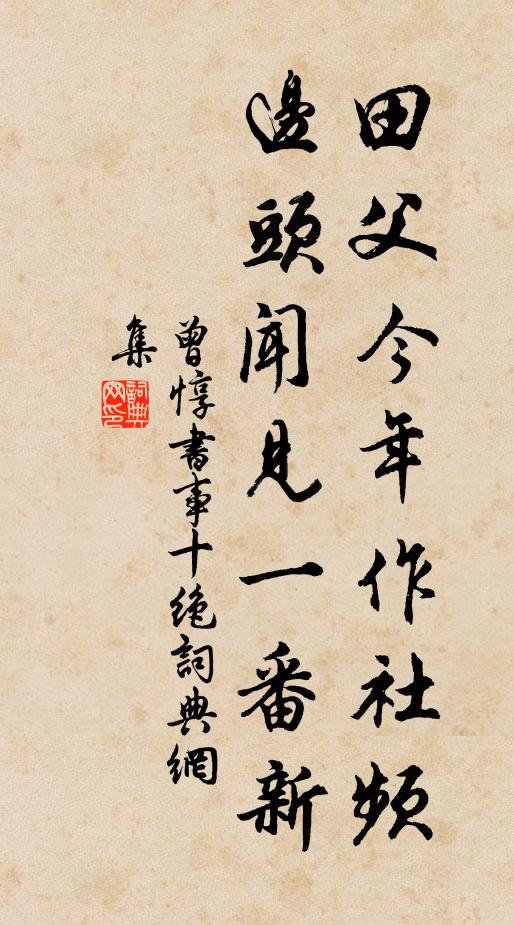 田父今年作社頻
邊頭聞見一番新
曾惇書事十絶詞典網
集
詞典
网印